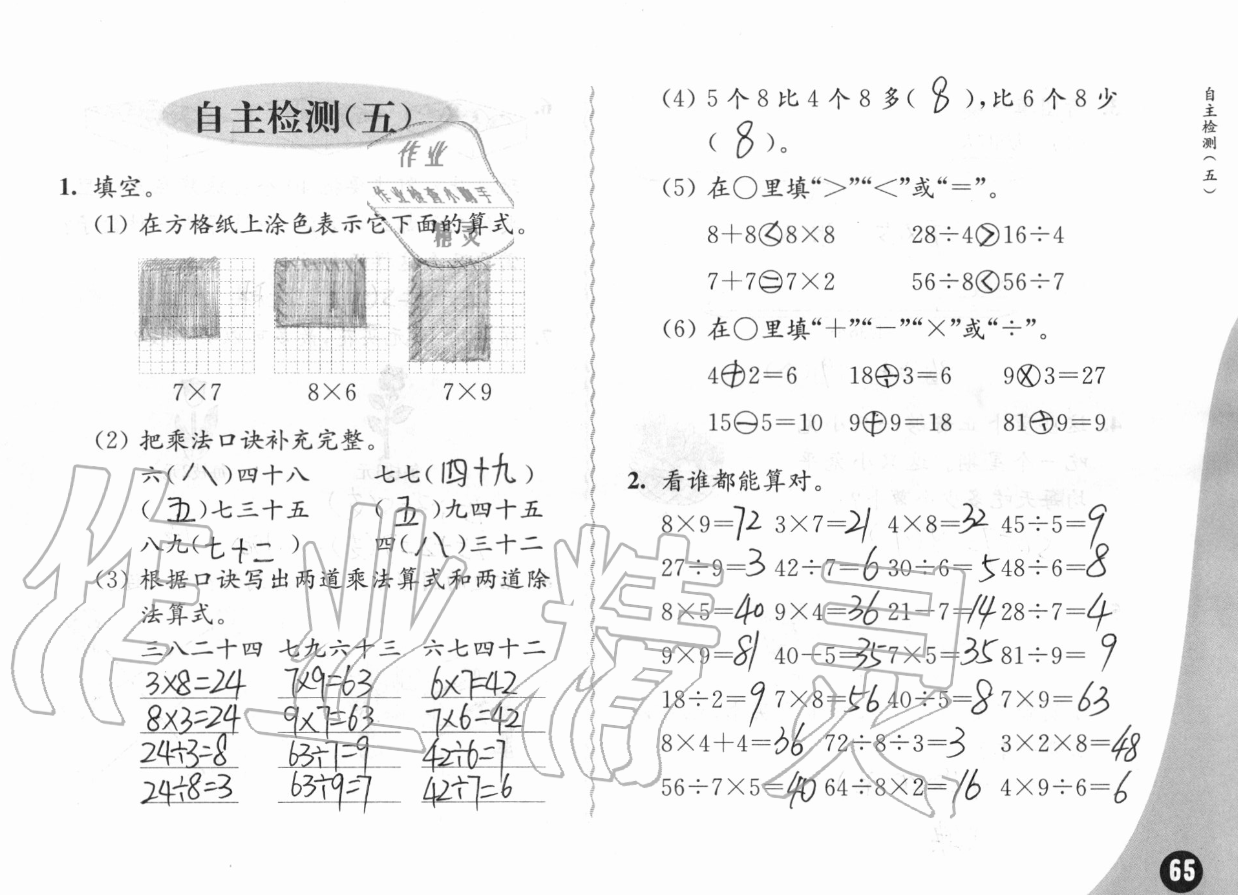 自主检测(五)
作业
作业检查小助手
精灵
1. 填空。
(1) 在方格纸上涂色表示它下面的算式。
7×7 8×6 7×9
(2) 把乘法口诀补充完整。
六(八)四十八 七七(四十九)
(五)七三十五 (五)九四十五
八九(七十二) 四(八)三十二
(3) 根据口诀写出两道乘法算式和两道除
法算式。
三八二十四 七九六十三 六七四十二
3×8=24 7×9=63 6×7=42
8×3=24 9×7=63 7×6=42
24÷3=8 63÷7=9 42÷6=7
24÷8=3 63÷9=7 42÷7=6
(4) 5个8比4个8多(8),比6个8少
(8)。
(5) 在○里填“>”“<”或“=”。
8+8<8×8 28÷4>16÷4
7+7=7×2 56÷8<56÷7
(6) 在○里填“+”“-”“×”或“÷”。
4+2=6 18÷3=6 9×3=27
15-5=10 9+9=18 81÷9=9
2. 看谁都能算对。
8×9=72 3×7=21 4×8=32 45÷5=9
27÷9=3 42÷7=6 30÷6=5 48÷6=8
8×5=40 9×4=36 21-7=14 28÷7=4
9×9=81 40-5=35 7×5=35 81÷9=9
18÷2=9 7×8=56 40÷5=8 7×9=63
8×4+4=36 72÷8÷3=3 3×2×8=48
56÷7×5=40 64÷8×2=16 4×9÷6=6
自主检测(五)
65
作业精灵